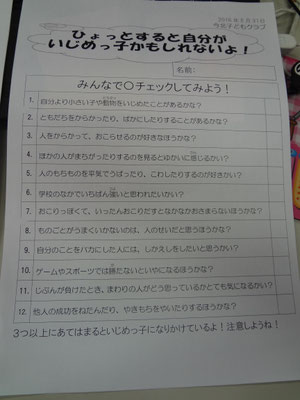 2016年5月21日
今北子どもクラブ
ひょっとすると自分が
いじめっ子かもしれないよ！
名前:
みんなで○チェックしてみよう！
1. 自分より小さい子や動物をいじめたことがあるかな？
2. ともだちをからかったり、ばかにしたりすることがあるかな？
3. 人をからかって、おこらせるのが好きなほうかな？
4. ほかの人がまちがったりするのを見るとゆかいに感じるかい？
5. 人のもちものを平気でうばったり、こわしたりするのが好きかい？
6. 学校のなかでいちばん強いと思われたいかい？
7. おこりっぽくて、いったんおこりだすとなかなかおさまらないほうかな？
8. ものごとがうまくいかないのは、人のせいだと思うほうかな？
9. 自分のことをバカにした人には、しかえしをしたいと思うかい？
10. ゲームやスポーツでは勝たないといやになるほうかな？
11. じぶんが負けたとき、まわりの人がどう思っているかとても気になるかい？
12. 他人の成功をねたんだり、やきもちをやいたりするほうかな？
3つ以上にあてはまるといじめっ子になりかけているよ！注意しようね！